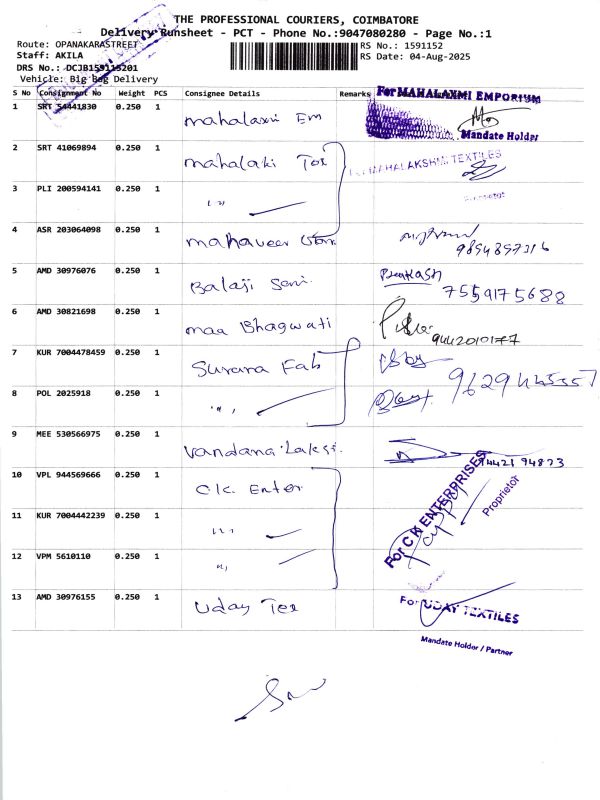 THE PROFESSIONAL COURIERS, COIMBATORE
Delivery Runsheet - PCT - Phone No.:9047080280 - Page No.:1
Route: OPANAKARASTREET
RS No.: 1591152
Staff: AKILA
RS Date: 04-Aug-2025
DRS No.: DCJB159115201
Vehicle: Big Bag Delivery
S No Consignment No Weight PCS Consignee Details Remarks
For MAHALAXMI EMPORIUM
1 SRT 54441830 0.250 1 mahalaxmi Em
Mandate Holder
2 SRT 41069894 0.250 1 mahalaki Tex
MAHALAKSHMI TEXTILES
3 PLI 200594141 0.250 1 " "
4 ASR 203064098 0.250 1 mahaveer
9894897316
5 AMD 30976076 0.250 1 Balaji Sari
Prakash
7559175688
6 AMD 30821698 0.250 1 maa Bhagwati
9442010177
7 KUR 7004478459 0.250 1 Surana Fab
8 POL 2025918 0.250 1 " "
9 MEE 530566975 0.250 1 Vandana Laksi.
94421 94873
10 VPL 944569666 0.250 1 C.K. Enter
For C K ENTERPRISES
Proprietor
11 KUR 7004442239 0.250 1 " "
12 VPM 5610110 0.250 1 " "
13 AMD 30976155 0.250 1 Uday Tex
For UDAY TEXTILES
Mandate Holder / Partner